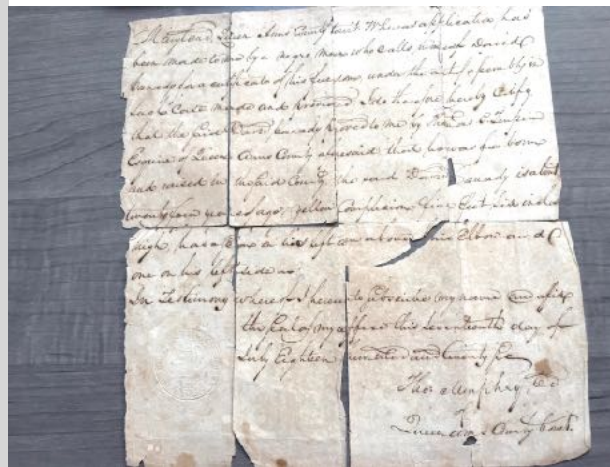 Maryland Queen Anns County to wit Whereas application has
been made to me by a negro man who calls himself David
Canady for a certificate of his freedom under the act of assembly in
Such Case made and provided I do therefore hereby Certify
that the said David Canady proved to me by Thomas
Esquire of Queen Anns County aforesaid that he was free born
and raised in the said County the said David Canady is about
twenty four years of age yellow Complexion five feet six inches
high, has a on his left arm above his Elbow and
one on his left side
In Testimony whereof I hereunto subscribe my name and affix
the Seal of my office this seventeenth day of
July Eighteen hundred and twenty
Thos Murphey
Queen Anns County Court